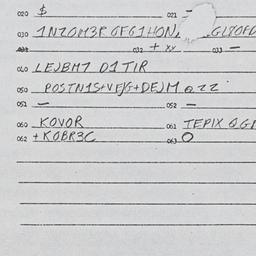 020 $ 021 —
030 1NZOM3R GFG1HON,
032 + xx 033 —
040 LEJBM7 D1TIR
050 POSTN1S+VEJG+DEJM QZZ
051 — 052 —
060 KOVOR 061 TEPIX
062 +KOBR3C 063 O